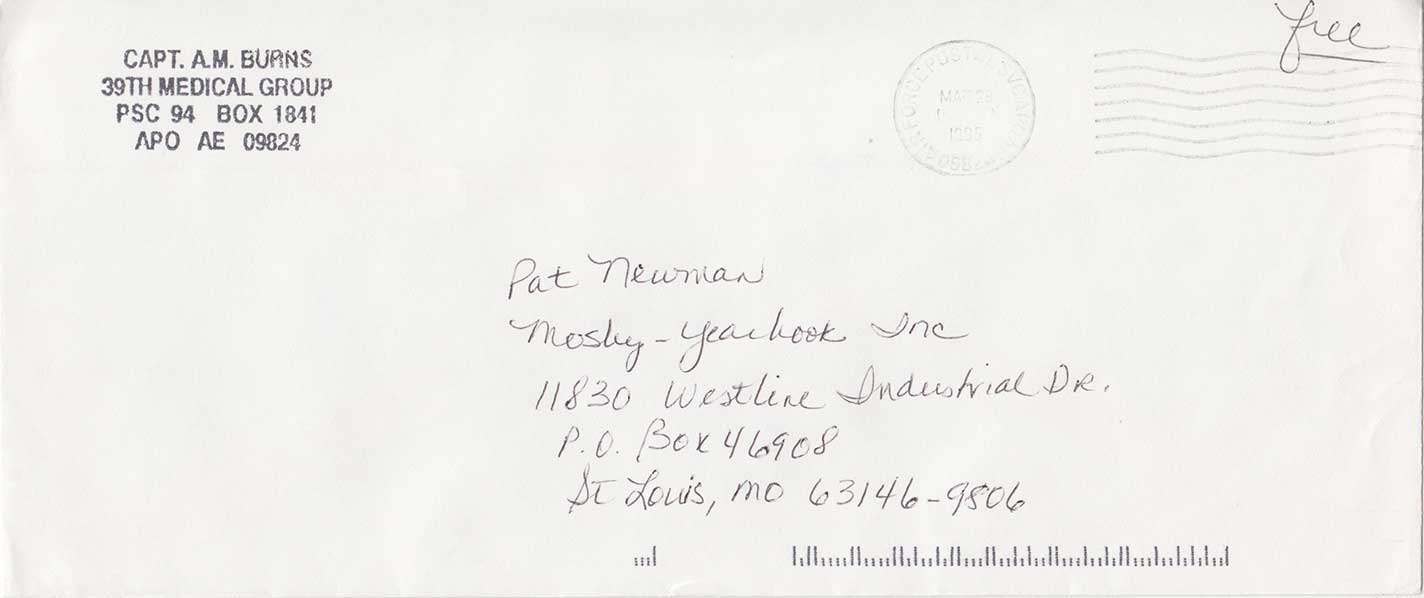 CAPT. A.M. BURNS
39TH MEDICAL GROUP
PSC 94 BOX 1841
APO AE 09824
free
AIR FORCE POSTAL SVC
MAR 28
1995
Pat Newman
Mosby-Yearbook Inc
11830 Westline Industrial DR.
P.O. Box 46908
St Louis, MO 63146-9806